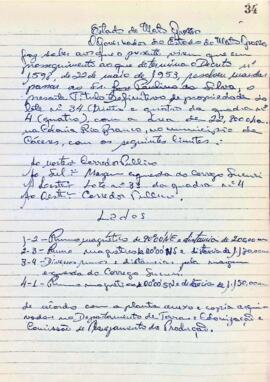 34
Estado de Mato Grosso
O Governador do Estado de Mato Grosso
faz saber aos que o presente virem que em
prosseguimento ao que determina o Decreto nº
1598, de 22 de maio de 1953, resolveu mandar
passar ao Sr. José Paulino da Silva, o
presente Título Definitivo de propriedade do
lote nº 34 (trinta e quatro) da quadra nº
4 (quatro) com a área de 22,800 ha
na Colonia Rio Branco, no municipio de
Cáceres, com os seguintes limites:
Ao norte: Corredor Publico
Ao Sul: Margem esquerda do Corrego Sucuri
A Leste: Lote nº 33 da quadra nº 4
Ao Oeste: Corredor Publico.
Lados
1-2- Rumo magnetico de e distancia de 200,00 m
2-3- Rumo magnetico de e distancia de
3-4- Diversos rumos e distancias, pela margem
esquerda do Corrego Sucuri
4-1- Rumo magnetico de e distancia de 1.150,00 m
de acordo com a planta anexa e copia arqui
vadas no Departamento de Terras e Colonização e
Comissão de Planejamento da Produção.